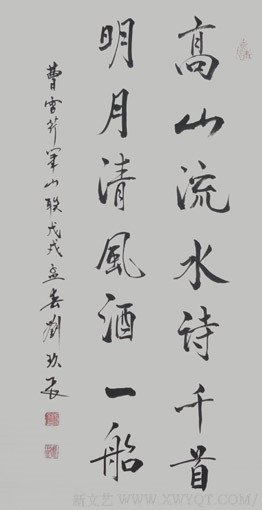 高山流水诗千首
明月清風酒一船
曹雪芹笔山联戊戌孟春劉玖長
新文艺 WWW.XWYQT.COM